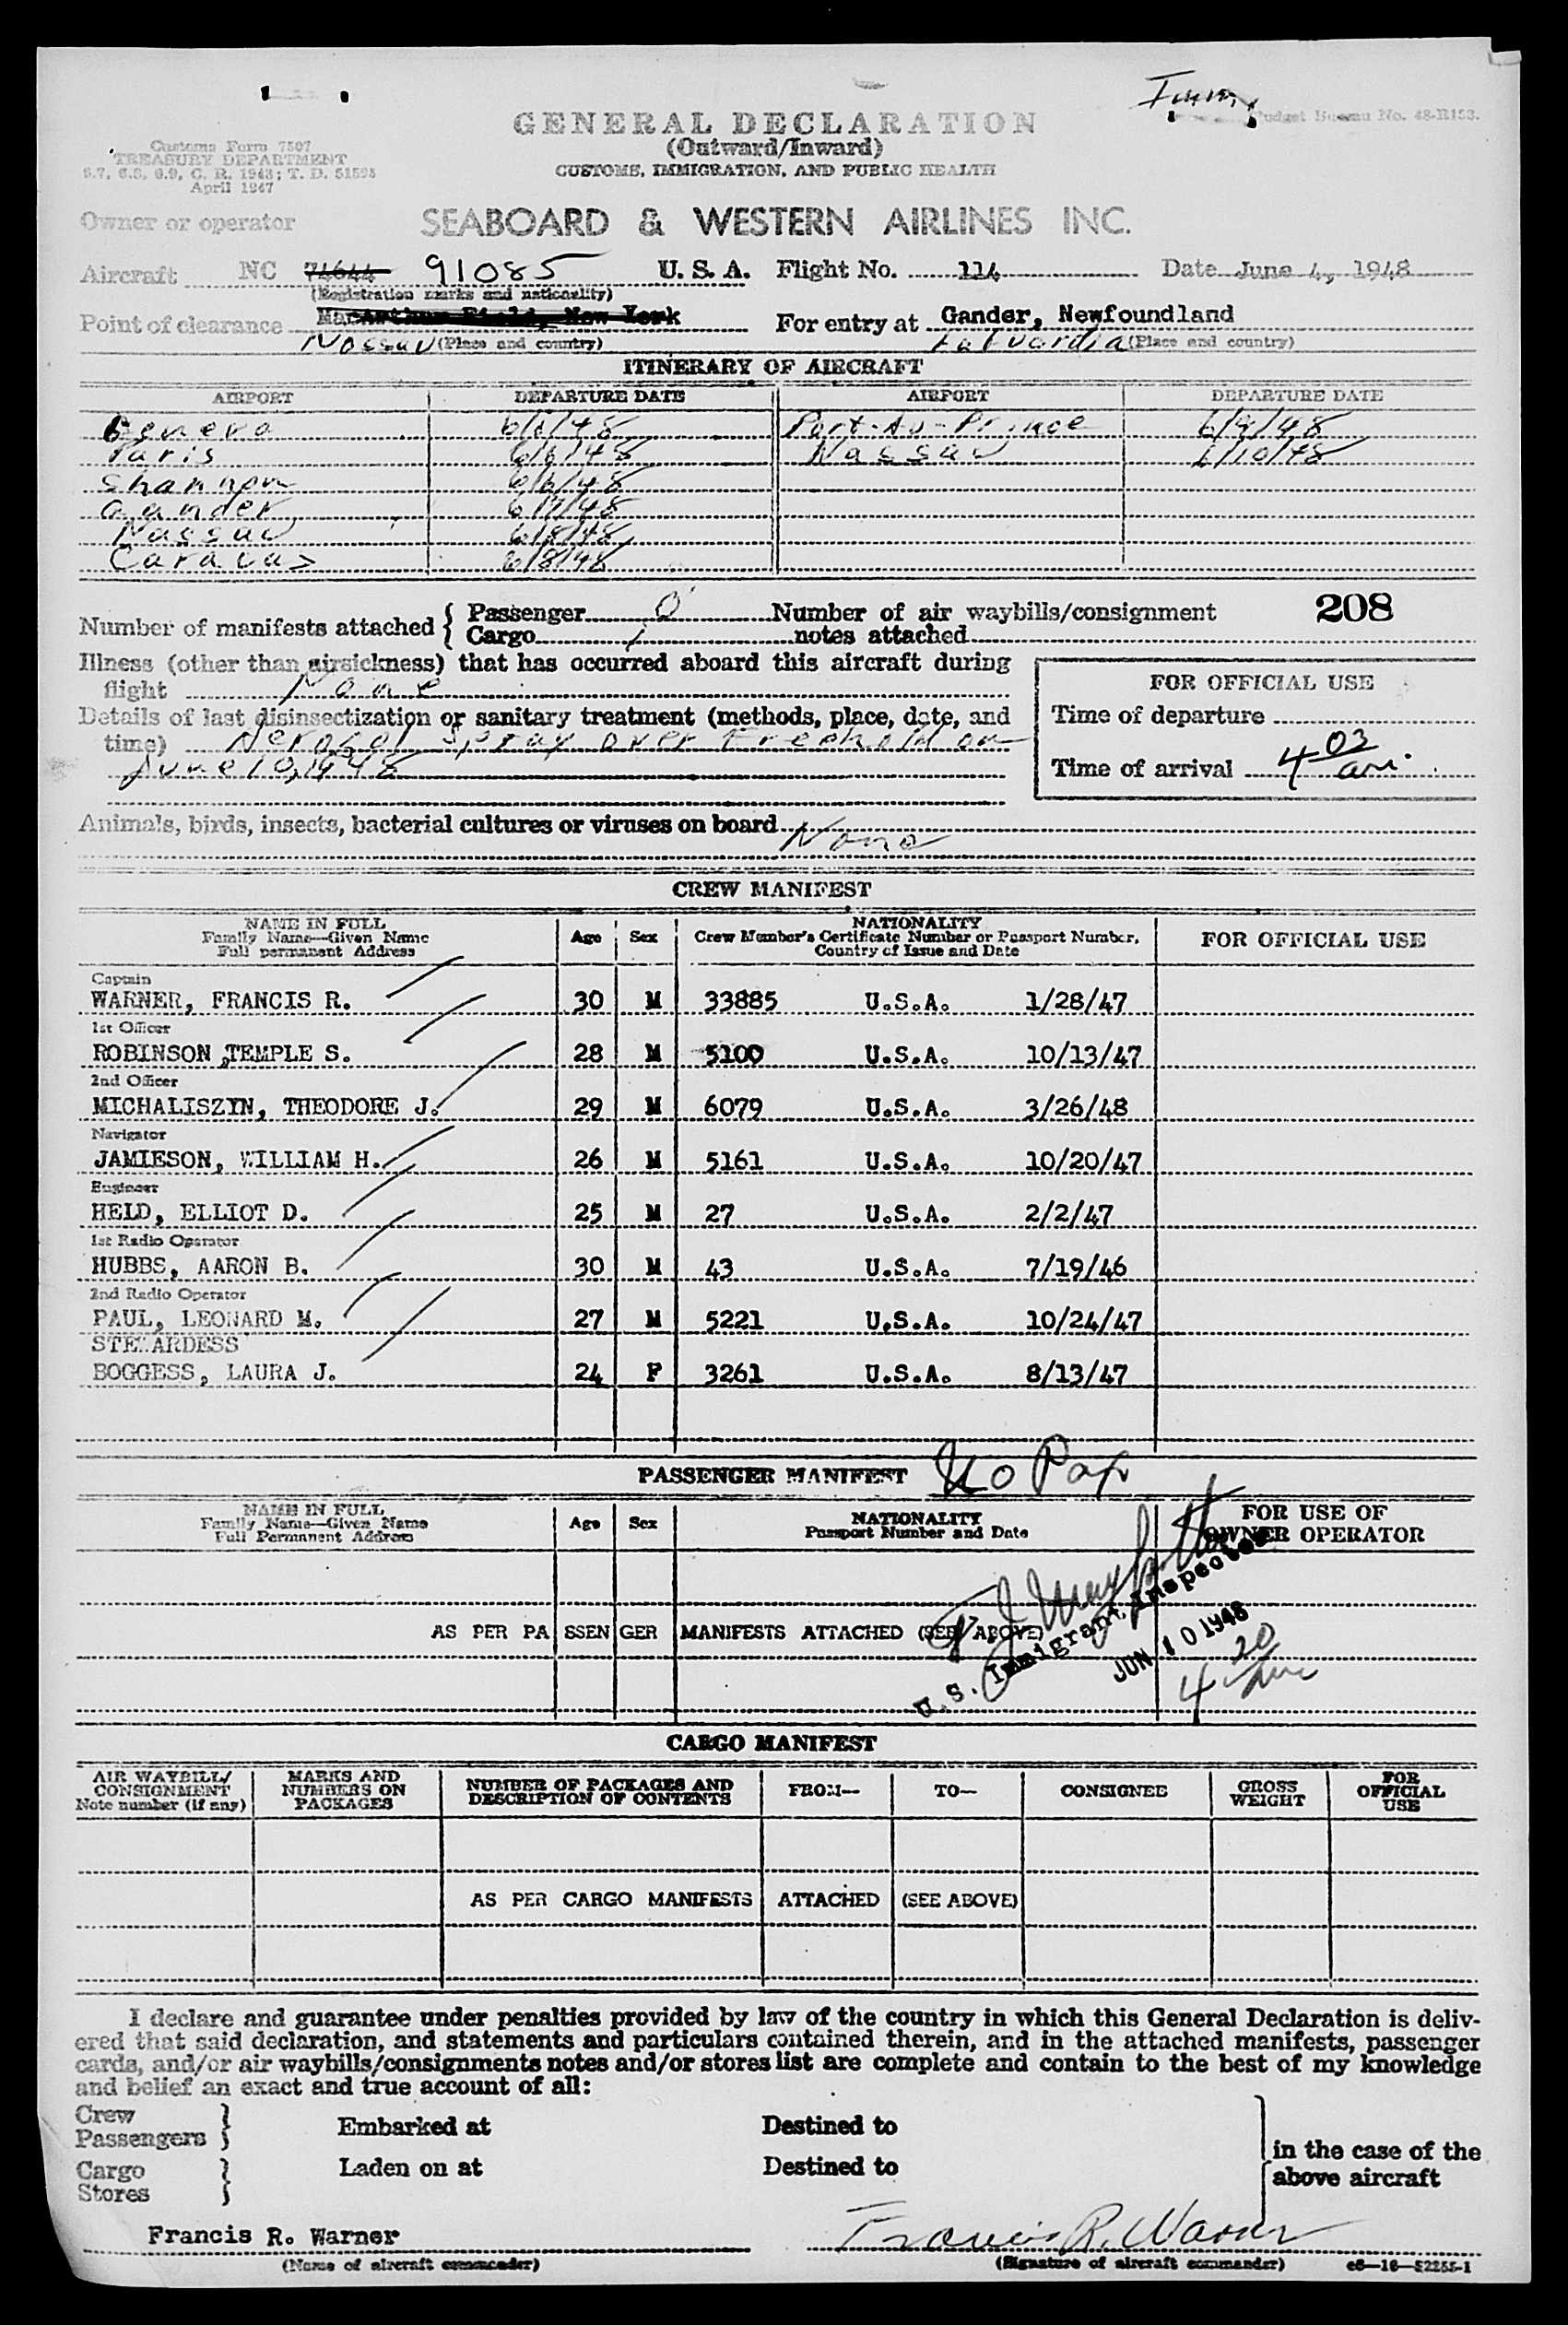 GENERAL DECLARATION
(Outward/Inward)
CUSTOMS, IMMIGRATION, AND PUBLIC HEALTH
Budget Bureau No. 48-R153.
Customs Form 7507
TREASURY DEPARTMENT
6.7, 6.8, 6.9, C. R. 1943; T. D. 51598
April 1947
Owner or operator SEABOARD & WESTERN AIRLINES INC.
Aircraft NC 74644 91085 U. S. A. Flight No. 114 Date June 4, 1948
(Registration marks and nationality)
Point of clearance MacArthur Field, New York For entry at Gander, Newfoundland
Nassau (Place and country) LaGuardia (Place and country)
ITINERARY OF AIRCRAFT
AIRPORT DEPARTURE DATE AIRPORT DEPARTURE DATE
Geneva 6/6/48 Port-Au-Prince 6/9/48
Paris 6/6/48 Nassau 6/10/48
Shannon 6/6/48
Gander 6/7/48
Nassau 6/8/48
Caracas 6/8/48
Number of manifests attached { Passenger 0 Number of air waybills/consignment 208
Cargo 1 notes attached
Illness (other than airsickness) that has occurred aboard this aircraft during
flight None
FOR OFFICIAL USE
Details of last disinsectization or sanitary treatment (methods, place, date, and
Time of departure
time) Aerosol Spray over Freehold on
June 10, 1948
Time of arrival 4 03 am.
Animals, birds, insects, bacterial cultures or viruses on board None
CREW MANIFEST
NAME IN FULL
Family Name—Given Name
Full permanent Address
Age Sex
NATIONALITY
Crew Member's Certificate Number or Passport Number,
Country of Issue and Date
FOR OFFICIAL USE
Captain
WARNER, FRANCIS R. 30 M 33885 U.S.A. 1/28/47
1st Officer
ROBINSON ,TEMPLE S. 28 M 5100 U.S.A. 10/13/47
2nd Officer
MICHALISZYN, THEODORE J. 29 M 6079 U.S.A. 3/26/48
Navigator
JAMIESON, WILLIAM H. 26 M 5161 U.S.A. 10/20/47
Engineer
HELD, ELLIOT D. 25 M 27 U.S.A. 2/2/47
1st Radio Operator
HUBBS, AARON B. 30 M 43 U.S.A. 7/19/46
2nd Radio Operator
PAUL, LEONARD M. 27 M 5221 U.S.A. 10/24/47
STEWARDESS
BOGGESS, LAURA J. 24 F 3261 U.S.A. 8/13/47
PASSENGER MANIFEST No Pax
NAME IN FULL
Family Name—Given Name
Full Permanent Address
Age Sex
NATIONALITY
Passport Number and Date
FOR USE OF
OWNER OPERATOR
AS PER PASSENGER MANIFESTS ATTACHED (SEE ABOVE)
U.S. Immigrant Inspector
JUN 10 1948
4 20 am
CARGO MANIFEST
AIR WAYBILL/
CONSIGNMENT
Note number (if any)
MARKS AND
NUMBERS ON
PACKAGES
NUMBER OF PACKAGES AND
DESCRIPTION OF CONTENTS
FROM— TO— CONSIGNEE
GROSS
WEIGHT
FOR
OFFICIAL
USE
AS PER CARGO MANIFESTS ATTACHED (SEE ABOVE)
I declare and guarantee under penalties provided by law of the country in which this General Declaration is deliv-
ered that said declaration, and statements and particulars contained therein, and in the attached manifests, passenger
cards, and/or air waybills/consignments notes and/or stores list are complete and contain to the best of my knowledge
and belief an exact and true account of all:
Crew
Passengers } Embarked at Destined to
in the case of the
Cargo } Laden on at Destined to
above aircraft
Stores
Francis R. Warner Francis R. Warner
(Name of aircraft commander) (Signature of aircraft commander) c8—16—52255-1